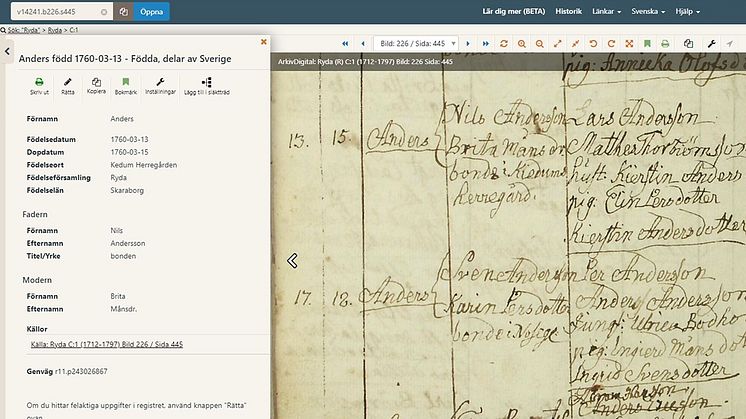 v14241.b226.s445
Öppna
Lär dig mer (BETA) Historik Länkar Svenska Hjälp
Sök: "Ryda" > Ryda > C:1
Bild: 226 / Sida: 445
ArkivDigital: Ryda (R) C:1 (1712-1797) Bild: 226 Sida: 445
Anders född 1760-03-13 - Födda, delar av Sverige
Skriv ut Rätta Kopiera Bokmärk Inställningar Lägg till i släktträd
Förnamn Anders
Födelsedatum 1760-03-13
Dopdatum 1760-03-15
Födelseort Kedum Herregården
Födelseförsamling Ryda
Födelselän Skaraborg
Fadern
Förnamn Nils
Efternamn Andersson
Titel/Yrke bonden
Modern
Förnamn Brita
Efternamn Månsdr.
Källor
Källa: Ryda C:1 (1712-1797) Bild 226 / Sida 445
Genväg r11.p243026867
Om du hittar felaktiga uppgifter i registret, använd knappen "Rätta"
ovan
pig: Anneeka Olofsd
13. 15. Anders
Nils Andersson
Brita Måns
bonde i Kiedums
herregård.
Lars Andersson
Mathes
hust: Kierstin Anders
pig: Elin Larsdotter
Kierstin Andersdotter
17. 18. Anders
Sven Andersson
Karin Persdotter
bonde i
Per Andersson
Anders Anderssson
Jungf: Ulrica Bodho
pig: Ingierd Månsdot
Ingrid Svensdotter